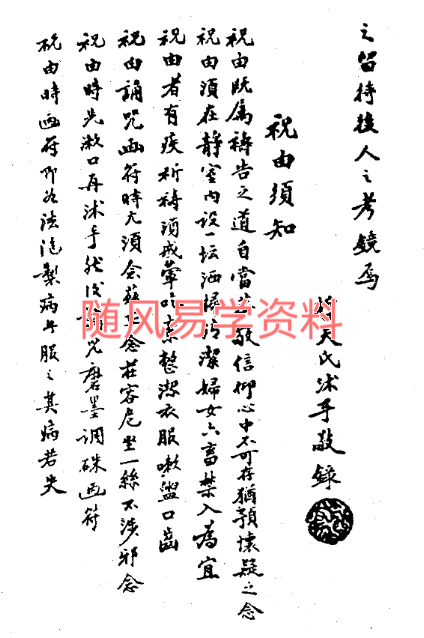 之留待後人之考鏡焉
天氏沐手敬錄
祝由須知
祝由既屬禱告之道自當敬信仰心中不可存猶預懷疑之念
祝由須在靜室內設一坛洒掃清潔婦女六畜禁入為宜
祝由者有疾祈禱須戒葷吃素整潔衣服嗽盥口齒
祝由誦咒画符時尤須念莊容危坐一絲不涉邪念
祝由時先漱口再沐手然後誦咒磨墨調硃画符
祝由時画符即法泡製病服之其病若失
随风易学资料